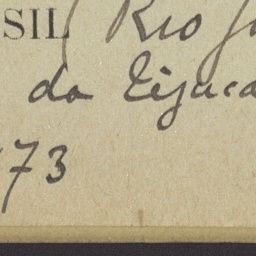 SIL (Rio J
da Tijuca
73